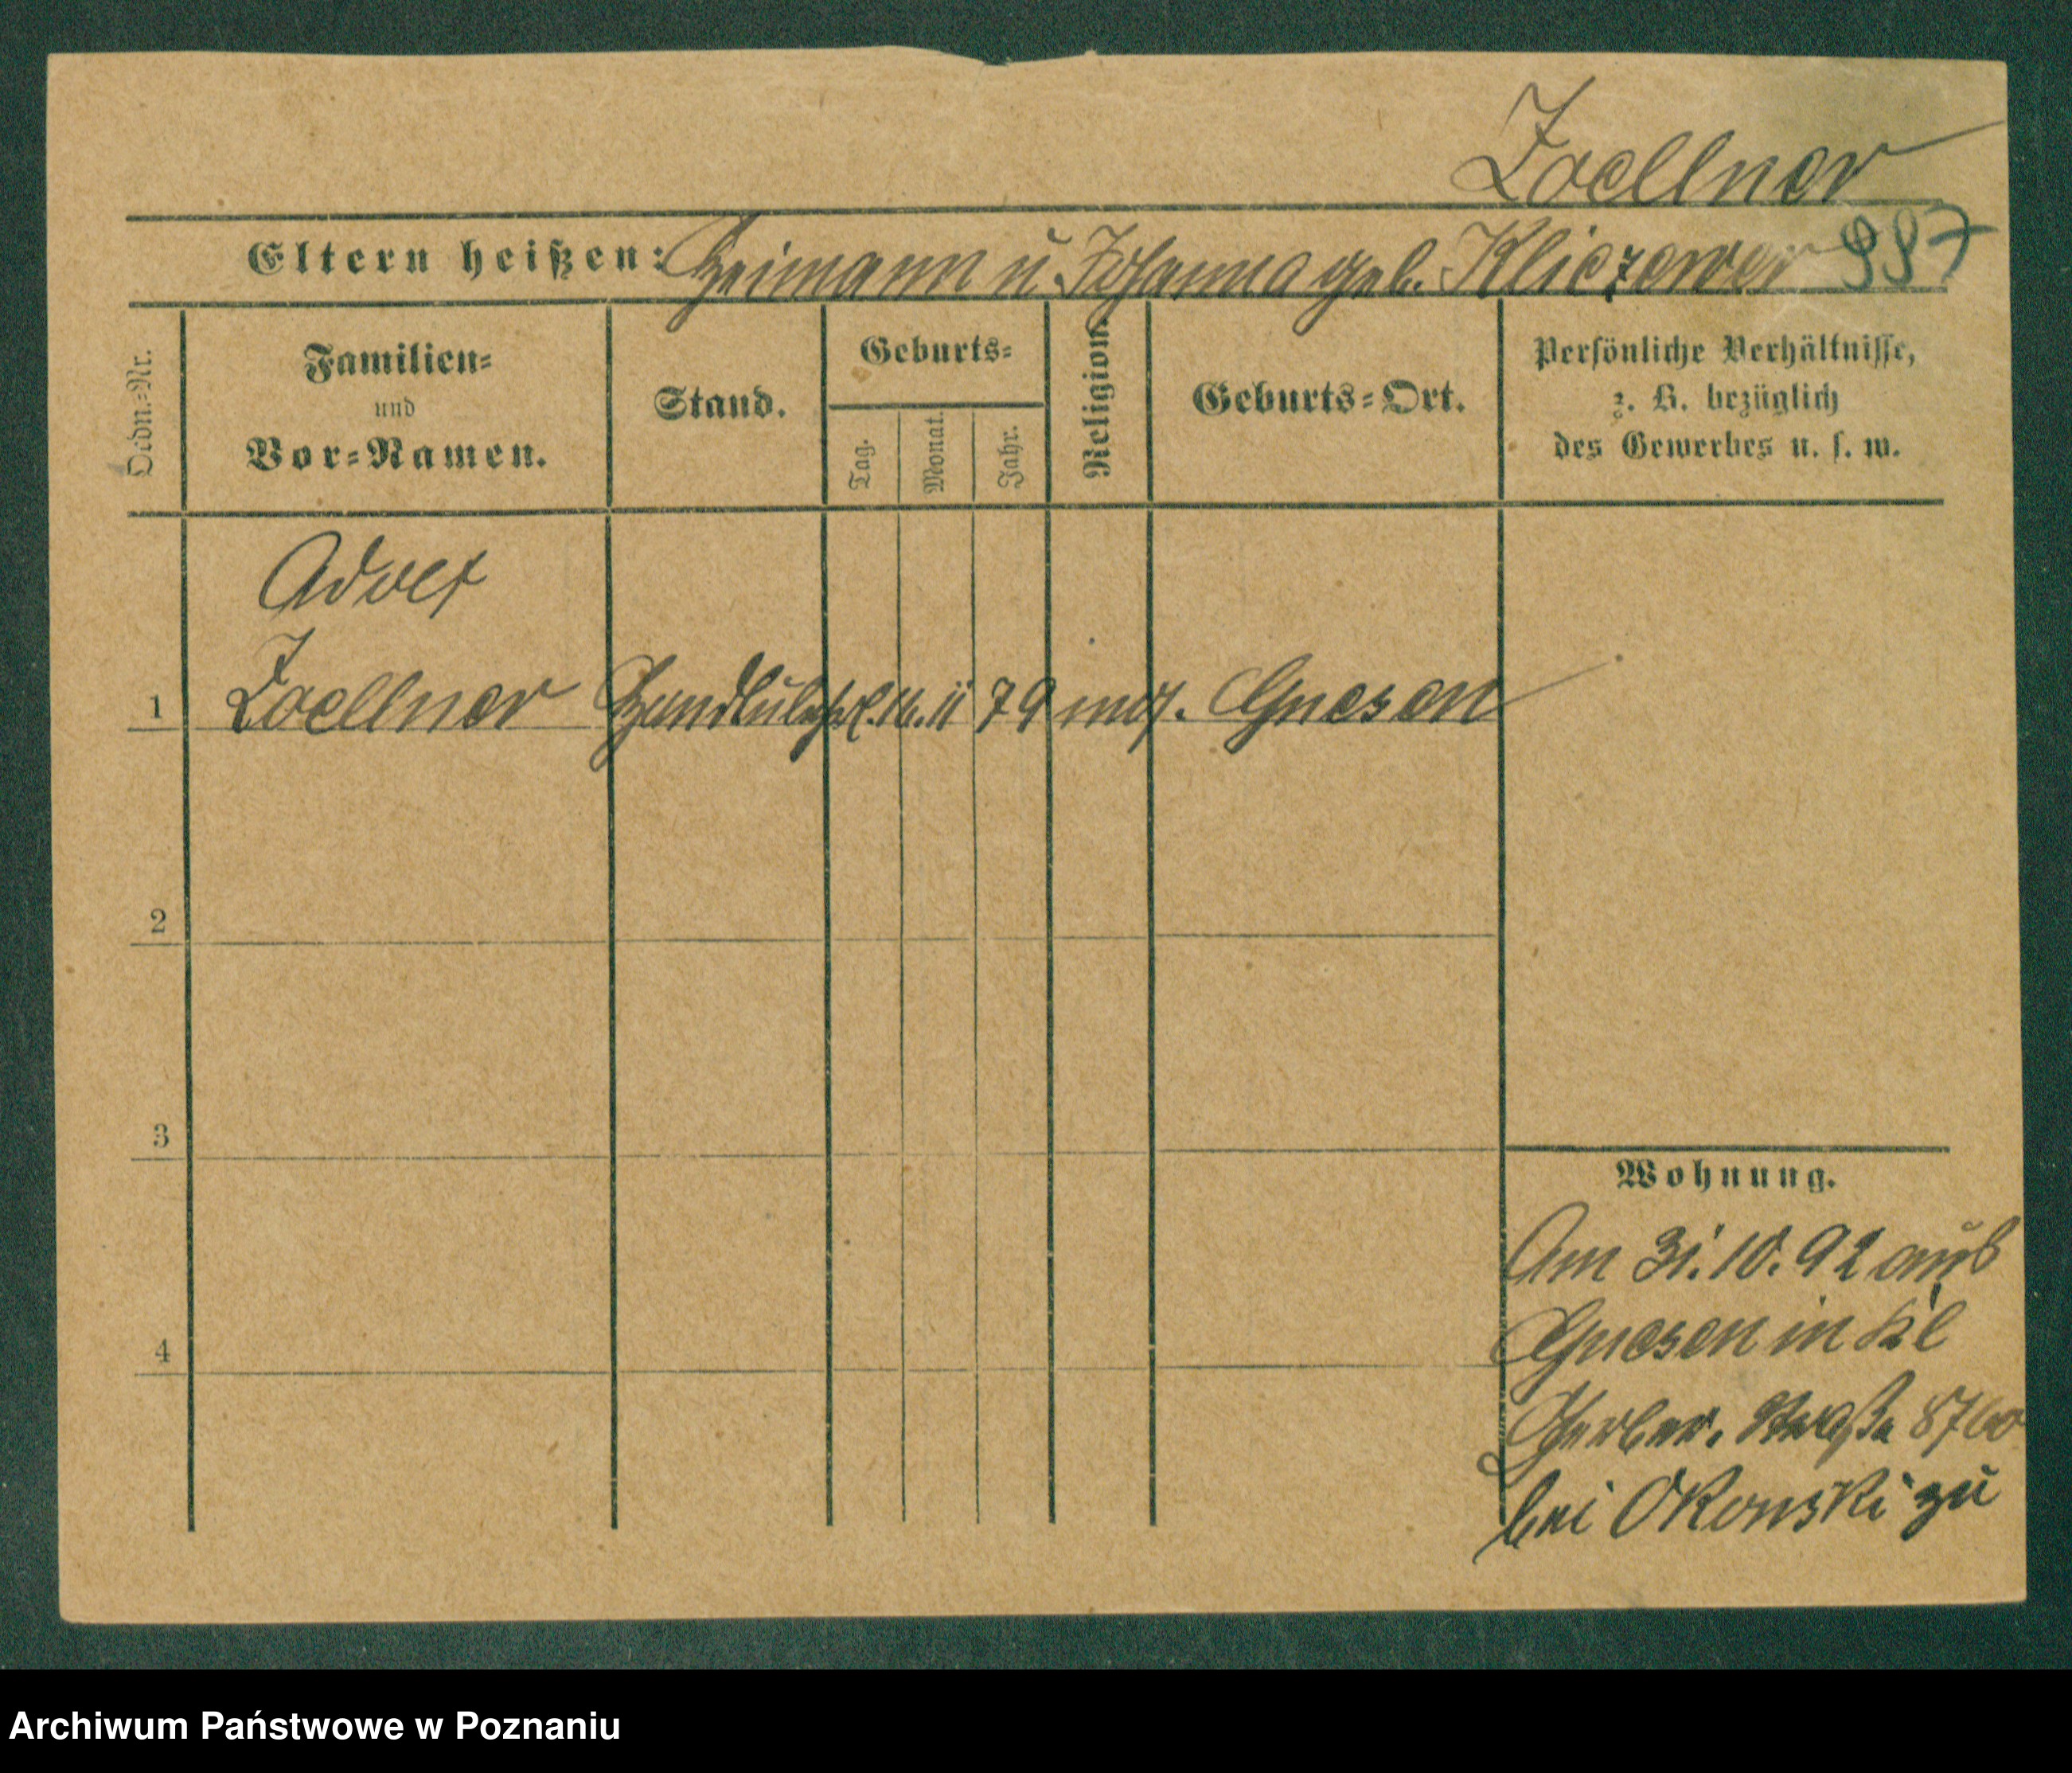 Zoellner
Eltern heißen: Heimann u. Johanna geb. Kliczewer 997
Ordn.-Nr.
Familien-
und
Vor-Namen.
Stand.
Geburts-
Tag.
Monat.
Jahr.
Religion.
Geburts-Ort.
Persönliche Verhältnisse,
z. B. bezüglich
des Gewerbes u. s. w.
Adolf
1 Zoellner 11 79 mos. Gnesen
2
3
4
Wohnung.
Am 31.10.92 aus
Gnesen in Kl
Gerber. Straße
bei Okonski zu
Archiwum Państwowe w Poznaniu